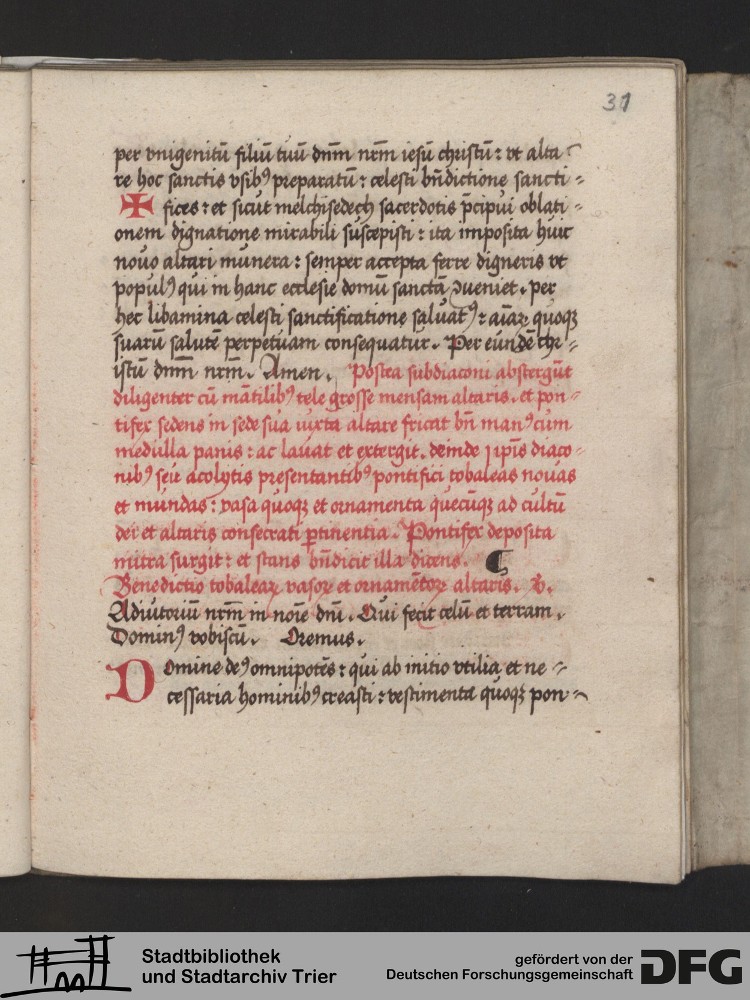 31
per vnigenitū filiū tuū dnm̄ nrm̄ iesū christū : vt alta-
re hoc sanctis vsibꝰ preparatū : celesti bn̄dictione sancti-
✠ fices : et sicut melchisedech sacerdotis p̄cipui oblati-
onem dignatione mirabili suscepisti : ita imposita huic
nouo altari munera : semper accepta ferre digneris vt
populꝰ qui in hanc ecclesie domū sanctā ꝯueniet . per
hec libamina celesti sanctificatione saluatꝰ : aīaꝝ quoqꝫ
suarū salutē perpetuam consequatur . Per eūndē chr-
istū dnm̄ nrm̄ . Amen . Postea subdiaconi abstergūt
diligenter cū mātilibꝰ tele grosse mensam altaris . et pon-
tifex sedens in sede sua iuxta altare fricat bn̄ manꝰ cum
medulla panis : ac lauat et extergit . deinde ip̄is diaco-
nibꝰ seu acolytis presentantibꝰ pontifici tobaleas nouas
et mundas : vasa quoqꝫ et ornamenta quecūqꝫ ad cultū
dei et altaris consecrati ꝑtinentia . Pontifex deposita
mitra surgit : et stans bn̄dicit illa dicens . ¶
Benedictio tobaleaꝝ vasoꝝ et ornamētoꝝ altaris . ℣.
Adiutoriū nrm̄ in noīe dnī . Qui fecit celū et terram .
Dominꝰ vobiscū . Oremus .
Domine deꝰ omnipotēs : qui ab initio vtilia et ne-
cessaria hominibꝰ creasti : vestimenta quoqꝫ pon-
Stadtbibliothek
und Stadtarchiv Trier
gefördert von der
Deutschen Forschungsgemeinschaft
DFG